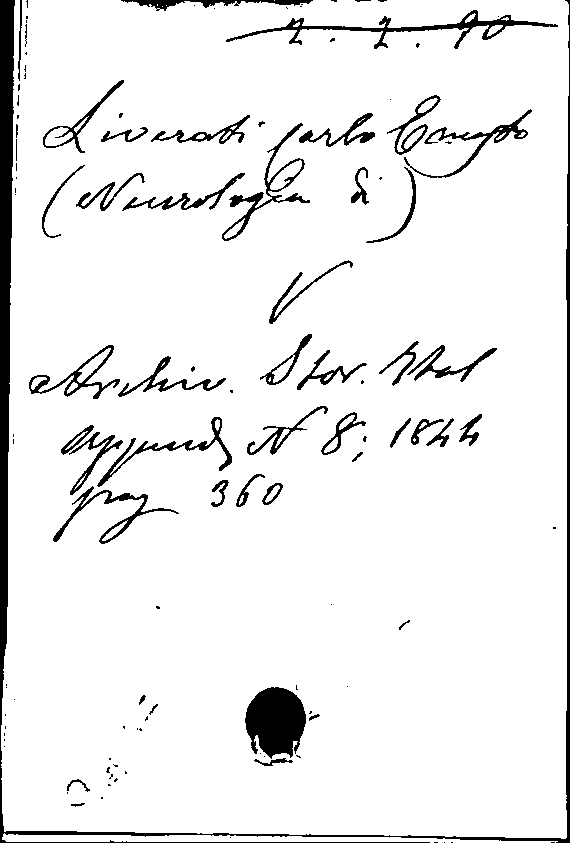 2. 2. 90
Liverati Carlo Ernesto
(Necrologia di)
V
Archiv. Stor. Ital
append N 8; 1844
pag 360